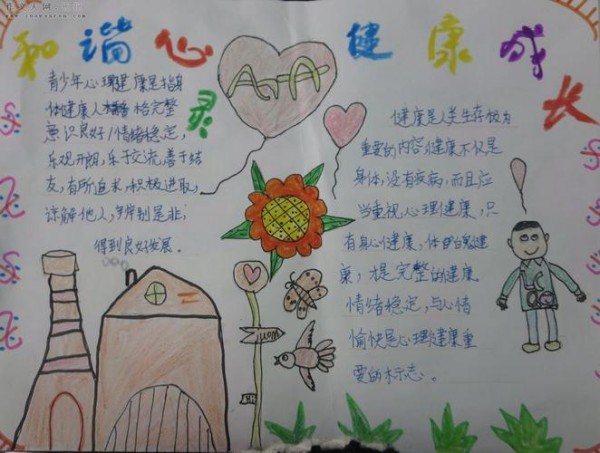 和谐心灵 健康成长
青少年心理健康是指身
体健康人格完整
意识良好/情绪稳定,
乐观开朗,乐于交流,善于结
友,有所追求,积极进取,
谅解他人,辨别是非,
得到良好发展。
健康是人类生存极为
重要的内容,健康不仅是
身体没有疾病,而且应
当重视心理健康,只
有身心健康、体
康,才是完整的健康
情绪稳定,与心情
愉快是心理健康重
要的标志。